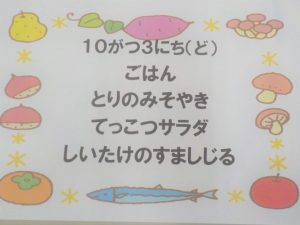 10がつ3にち(ど)
ごはん
とりのみそやき
てっこつサラダ
しいたけのすましじる